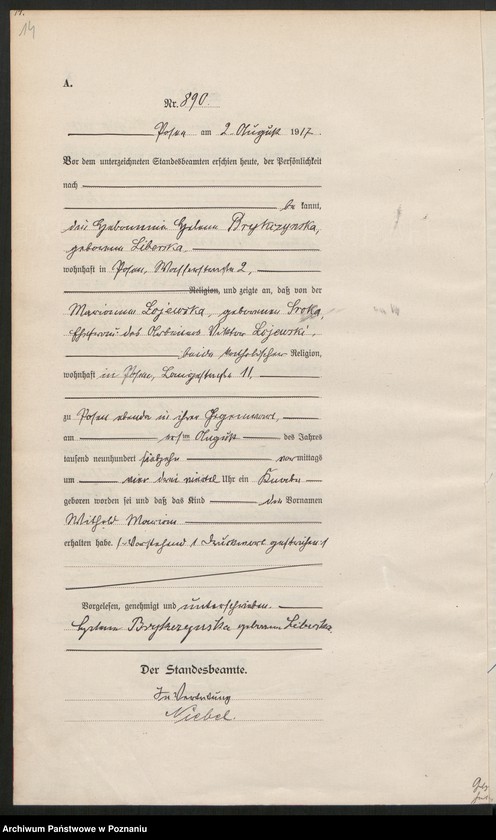 14
A.
Nr. 890.
Posen am 2. August 1917.
Vor dem unterzeichneten Standesbeamten erschien heute, der Persönlichkeit
nach
be kannt,
die Hebamme Helena Brykczynska,
geborene Liberska
wohnhaft in Posen, Wasserstraße 2,
Religion, und zeigte an, daß von der
Marianna Lojewska, geborenen Sroka,
Ehefrau des Arbeiters Viktor Lojewski,
beide katholischer Religion,
wohnhaft in Posen, Langestraße 11,
zu Posen ebenda in ihrer Gegenwart,
am ersten August des Jahres
tausend neunhundert siebzehn vormittags
um vier drei viertel Uhr ein Knabe
geboren worden sei und daß das Kind den Vornamen
Withold Marian
erhalten habe. /: Vorstehend 1 Druckwort gestrichen :/
Vorgelesen, genehmigt und unterschrieben.
Helena Brykczynska geborene Liberska
Der Standesbeamte.
In Vertretung
Niebel.
Archiwum Państwowe w Poznaniu